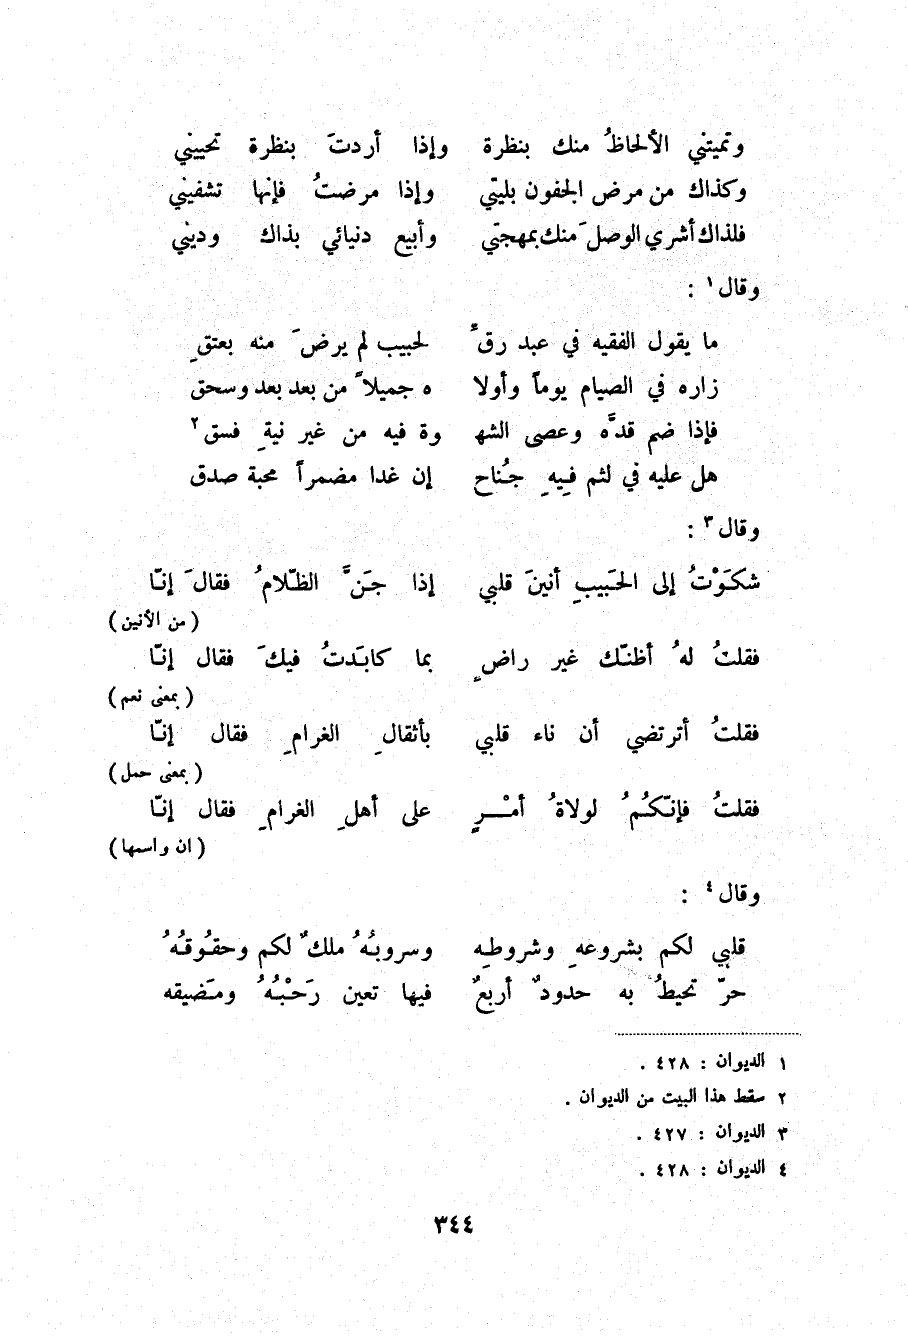 وتميتني الألحاظُ منك بنظرة وإذا أردتَ بنظرة تحييني
وكذاك من مرض الجفون بليتي وإذا مرضتُ فإنها تشفيني
فلذاك أشري الوصلَ منك بمهجتي وأبيع دنيائي بذاك وديني
وقال١ :
ما يقول الفقيه في عبد رقٍّ لحبيب لم يرضَ منه بعتقِ
زاره في الصيام يوماً وأولا ه جميلاً من بعد بعد وسحق
فإذا ضم قدَّه وعصى الشه وة فيه من غير نيةِ فسق٢
هل عليه في لثم فيهِ جُناح إن غدا مضمراً محبة صدق
وقال٣ :
شكَوْتُ إلى الحَبيبِ أنينَ قلبي إذا جَنَّ الظّلامُ فقالَ إنّا
(من الأنين)
فقلتُ لهُ أظنّك غير راضٍ بما كابَدتُ فيكَ فقال إنّا
(بمعنى نعم)
فقلتُ أترتضي أن ناء قلبي بأثقالِ الغرامِ فقال إنّا
(بمعنى حمل)
فقلتُ فإنّكُمُ لولاةُ أمْـرٍ على أهلِ الغرامِ فقال إنّا
(ان واسمها)
وقال٤ :
قلبي لكم بشروعهِ وشروطِه وسروبُهُ ملكٌ لكم وحقُوقُهُ
حرّ تحيطُ به حدودٌ أربعٌ فيها تعين رَحْبُهُ ومَضيقه
١ الديوان : ٤٢٨ .
٢ سقط هذا البيت من الديوان .
٣ الديوان : ٤٢٧ .
٤ الديوان : ٤٢٨ .
٣٤٤